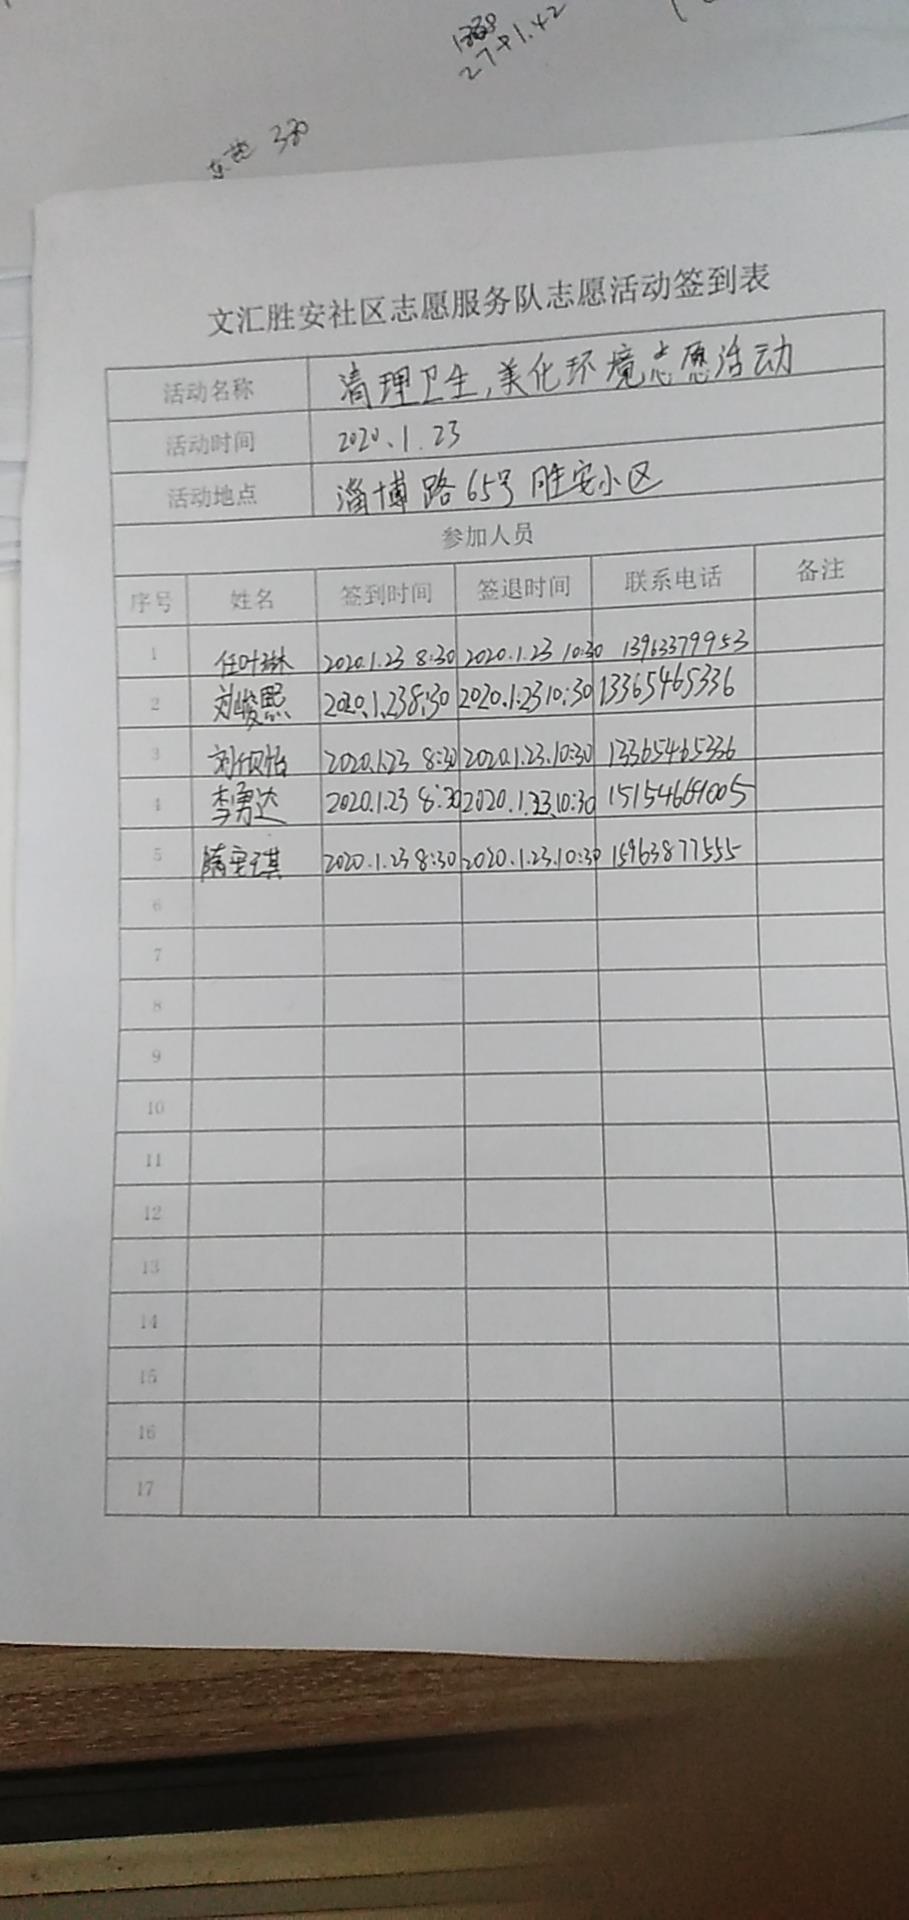 27+1.42
东营 330
文汇胜安社区志愿服务队志愿活动签到表
活动名称 清理卫生,美化环境志愿活动
活动时间 2020.1.23
活动地点 淄博路65号胜安小区
参加人员
序号 姓名 签到时间 签退时间 联系电话 备注
1 任叶琳 2020.1.23 8:30 2020.1.23 10:30 13963379953
2 刘峻熙 2020.1.23 8:30 2020.1.23 10:30 13365465336
3 2020.1.23 8:30 2020.1.23.10:30 13365465336
4 李勇达 2020.1.23 8:30 2020.1.23.10:30
5 2020.1.23 8:30 2020.1.23.10:30 15963877555
6
7
8
9
10
11
12
13
14
15
16
17